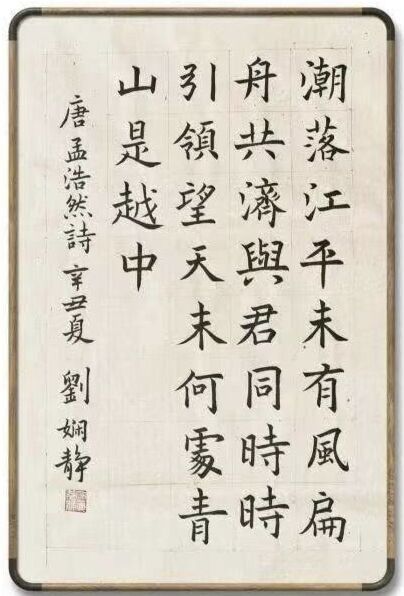 潮落江平未有風扁
舟共濟與君同時時
引領望天末何處青
山是越中
唐孟浩然詩 辛丑夏 劉嫻静